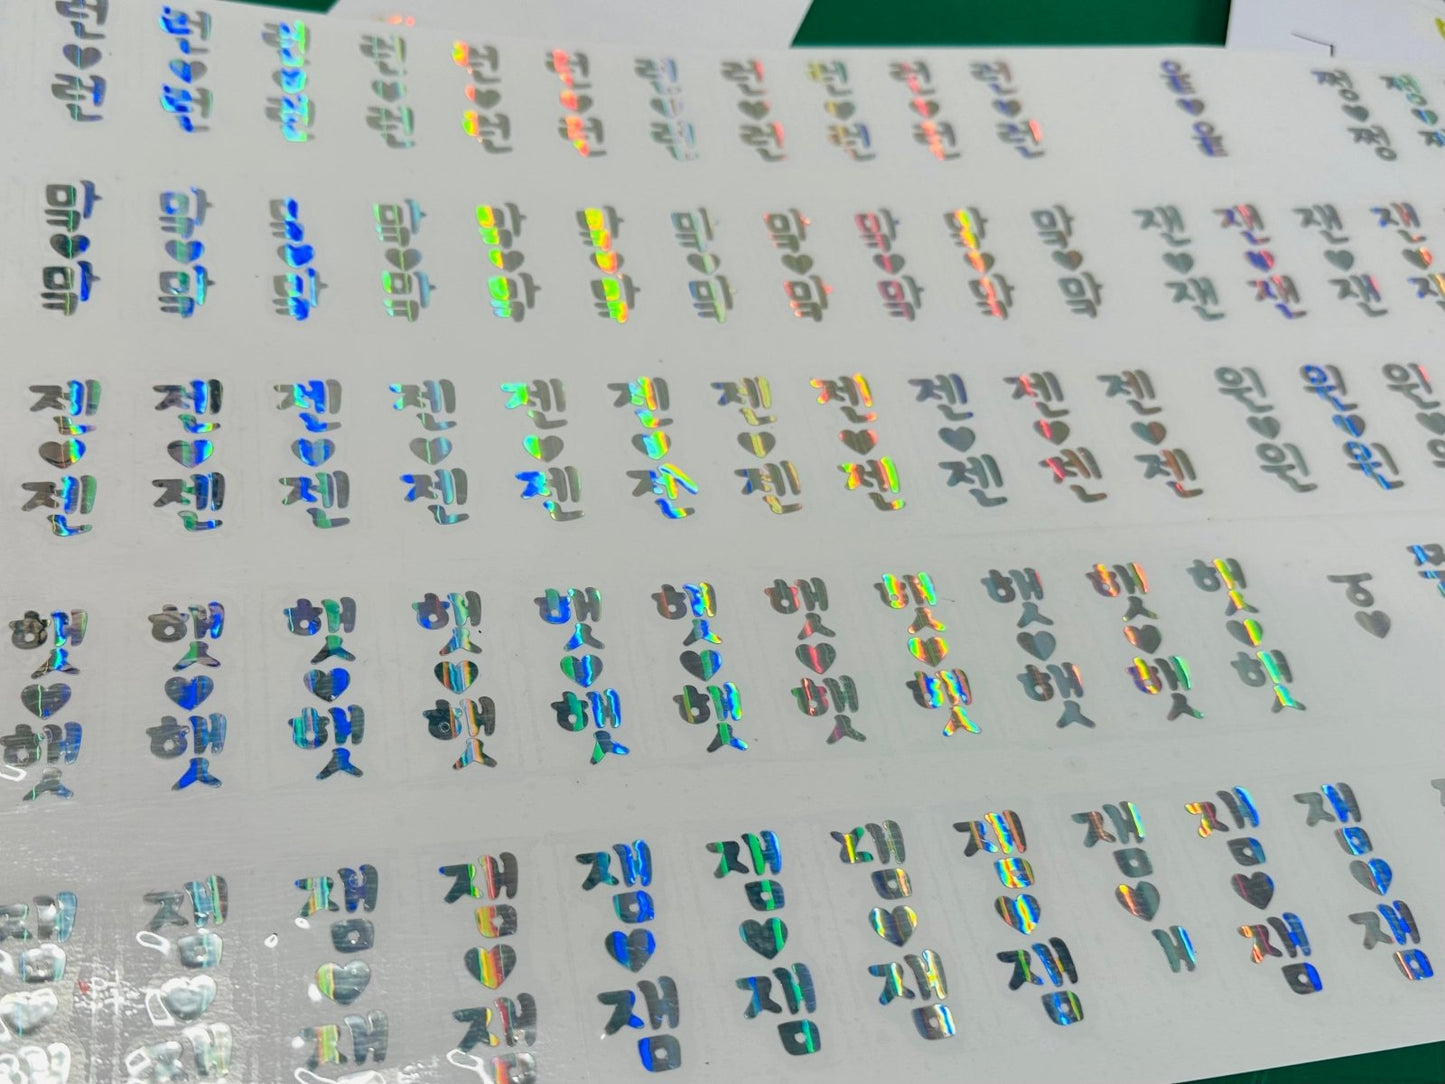 런 런 런 런 런 런 런 런 런 율 쩡 쩡
♥ ♥ ♥ ♥ ♥ ♥ ♥ ♥ ♥ ♥ ♥ ♥ ♥ ♥
런 런 런 런 런 런 런 런 런 율 쩡
막 막 막 막 막 막 막 막 막 막 막 잰 잰 잰 잰
♥ ♥ ♥ ♥ ♥ ♥ ♥ ♥ ♥ ♥ ♥ ♥ ♥ ♥ ♥
막 막 막 막 막 막 막 막 막 막 막 잰 잰 잰 잰
젠 젠 젠 젠 젠 젠 젠 젠 젠 젠 젠 윈 윈 윈
♥ ♥ ♥ ♥ ♥ ♥ ♥ ♥ ♥ ♥ ♥ ♥ ♥ ♥
젠 젠 젠 젠 젠 젠 젠 젠 젠 젠 젠 윈 윈
햇 햇 햇 햇 햇 햇 햇 햇 햇 햇 햇
♥ ♥ ♥ ♥ ♥ ♥ ♥ ♥ ♥ ♥ ♥ ♥
햇 햇 햇 햇 햇 햇 햇 햇 햇 햇 햇
잼 잼 잼 잼 잼 잼 잼 잼 잼 잼 잼
♥ ♥ ♥ ♥ ♥ ♥ ♥ ♥ ♥ ♥ ♥
잼 잼 잼 잼 잼 ㅐ 잼 잼